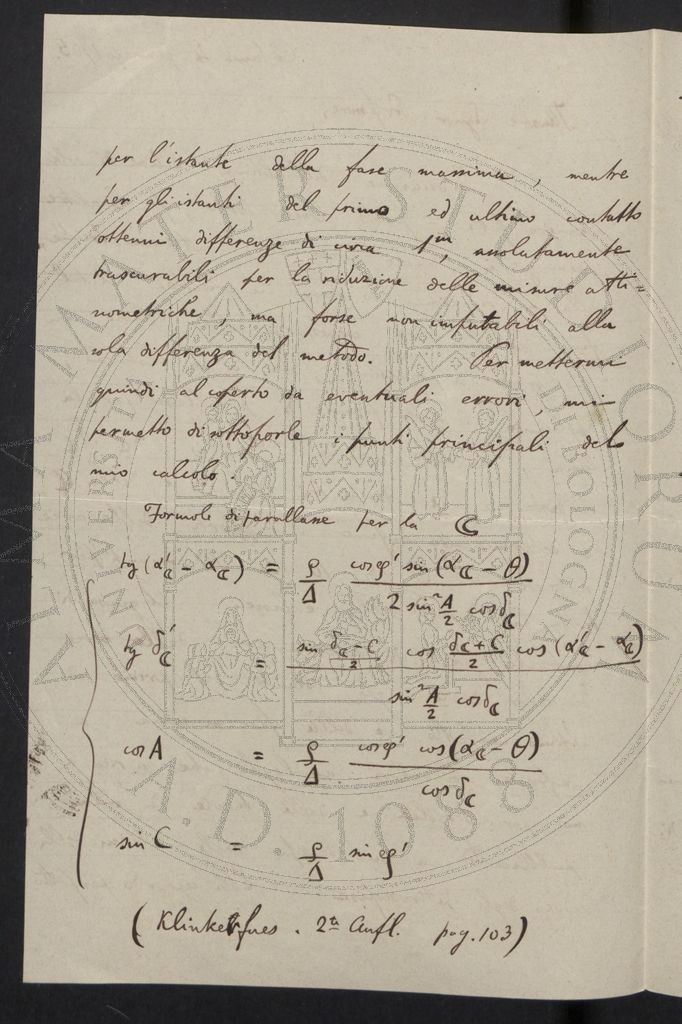 per l'istante della fase massima, mentre
per gli istanti del primo ed ultimo contatto
ottenni differenze di circa 1ᵐ, assolutamente
trascurabili per la riduzione delle misure atti=
nometriche, ma forse non imputabili alla
sola differenza del metodo. Per mettermi
quindi al coperto da eventuali errori, mi
permetto di sottoporle i punti principali del
mio calcolo.
Formole di parallasse per la ☾
tg (α'☾ - α☾) = ρ/Δ cos φ' sin (α☾ - θ) / 2 sin² A/2 cos δ☾
tg δ'☾ = sin (δ☾ - C)/2 cos (δ☾ + C)/2 cos (α'☾ - α☾) / sin² A/2 cos δ☾
cos A = ρ/Δ cos φ' cos (α☾ - θ) / cos δ☾
sin C = ρ/Δ sin φ'
(Klinkerfues. 2te Aufl. pag. 103)
ALMA MATER STUDIORUM
UNIVERSITÀ DI BOLOGNA
A.D. 1088